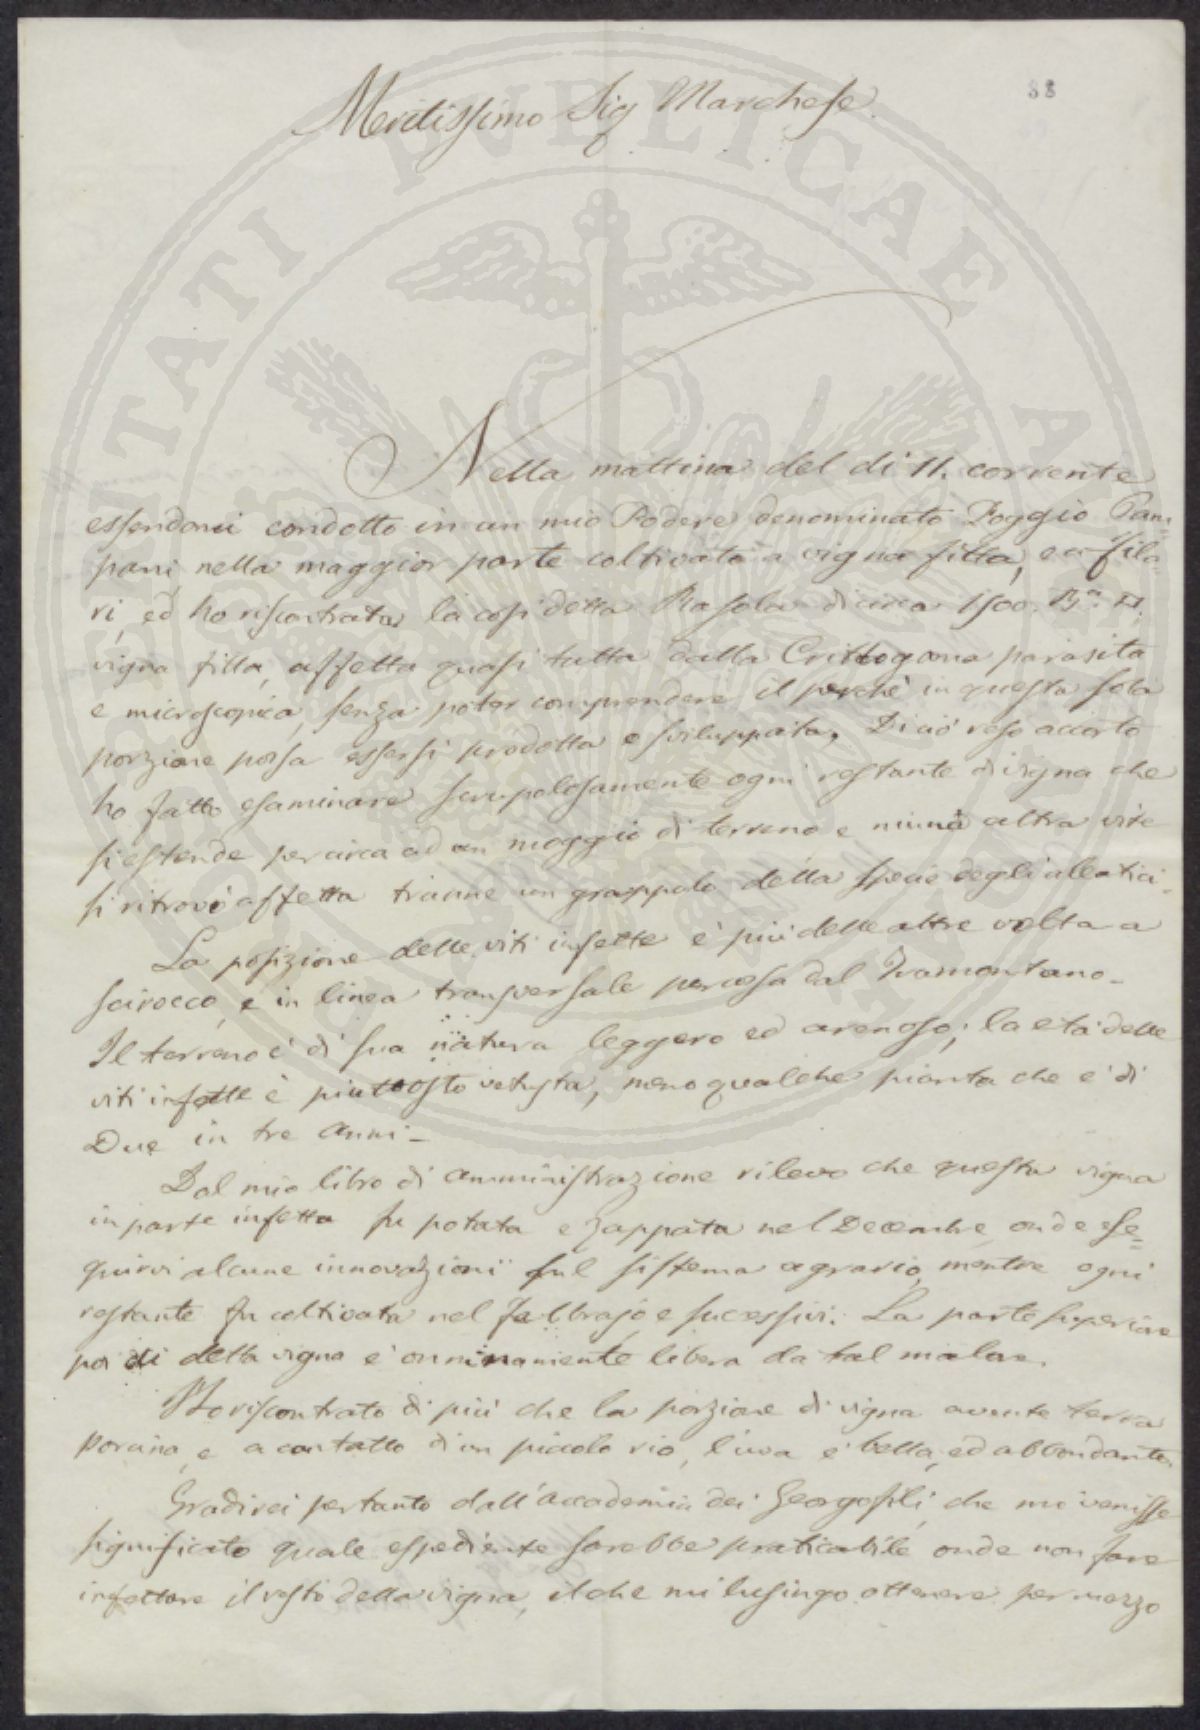 88
Meritissimo Sig Marchese.
Nella mattina del di 11. corrente
essendomi condotto in un mio Podere denominato Poggio Pam=
pani nella maggior parte coltivato a vigna fitta, e a fila-
ri, ed ho riscontrata la cosi detta Rasola di circa 1500. Bra. q.
vigna fitta, affetta quasi tutta dalla Crittogama parasita
e microscopica, senza poter comprendere il perchè in questa sola
porzione possa essersi prodotta e sviluppata. Di ciò reso accorto
ho fatto esaminare scrupolosamente ogni restante di vigna che
si estende per circa ad un moggio di terreno e niuna altra vite
si ritrovò affetta trianne un grappolo della specie degli aleatici.
La posizione delle viti infette è più delle altre volta a
scirocco, e in linea transversale percosa dal Tramontano.
Il terreno è di sua natura leggero ed arenoso; la età delle
viti infette è piuttosto vetusta, meno qualche pianta che è di
Due in tre anni.
Dal mio libro di amministrazione rilevo che questa vigna
in parte infetta fu potata e zappata nel Decembre, onde ese=
quirvi alcune innovazioni sul sistema agrario, mentre ogni
restante fu coltivata nel Febbrajo e sucessivi. La parte superiore
poi di detta vigna è onninamente libera da tal malore.
Ho riscontrato di più che la porzione di vigna avente terra
porcina, e a contatto di un piccolo rio, l'uva è bella, ed abbondante.
Gradirei pertanto dall'Accademia dei Georgofili, che mi venisse
significato quale espediente sarebbe praticabile onde non fare
infettare il resto della vigna, il che mi lusingo ottenere per mezzo
PUBLICAE